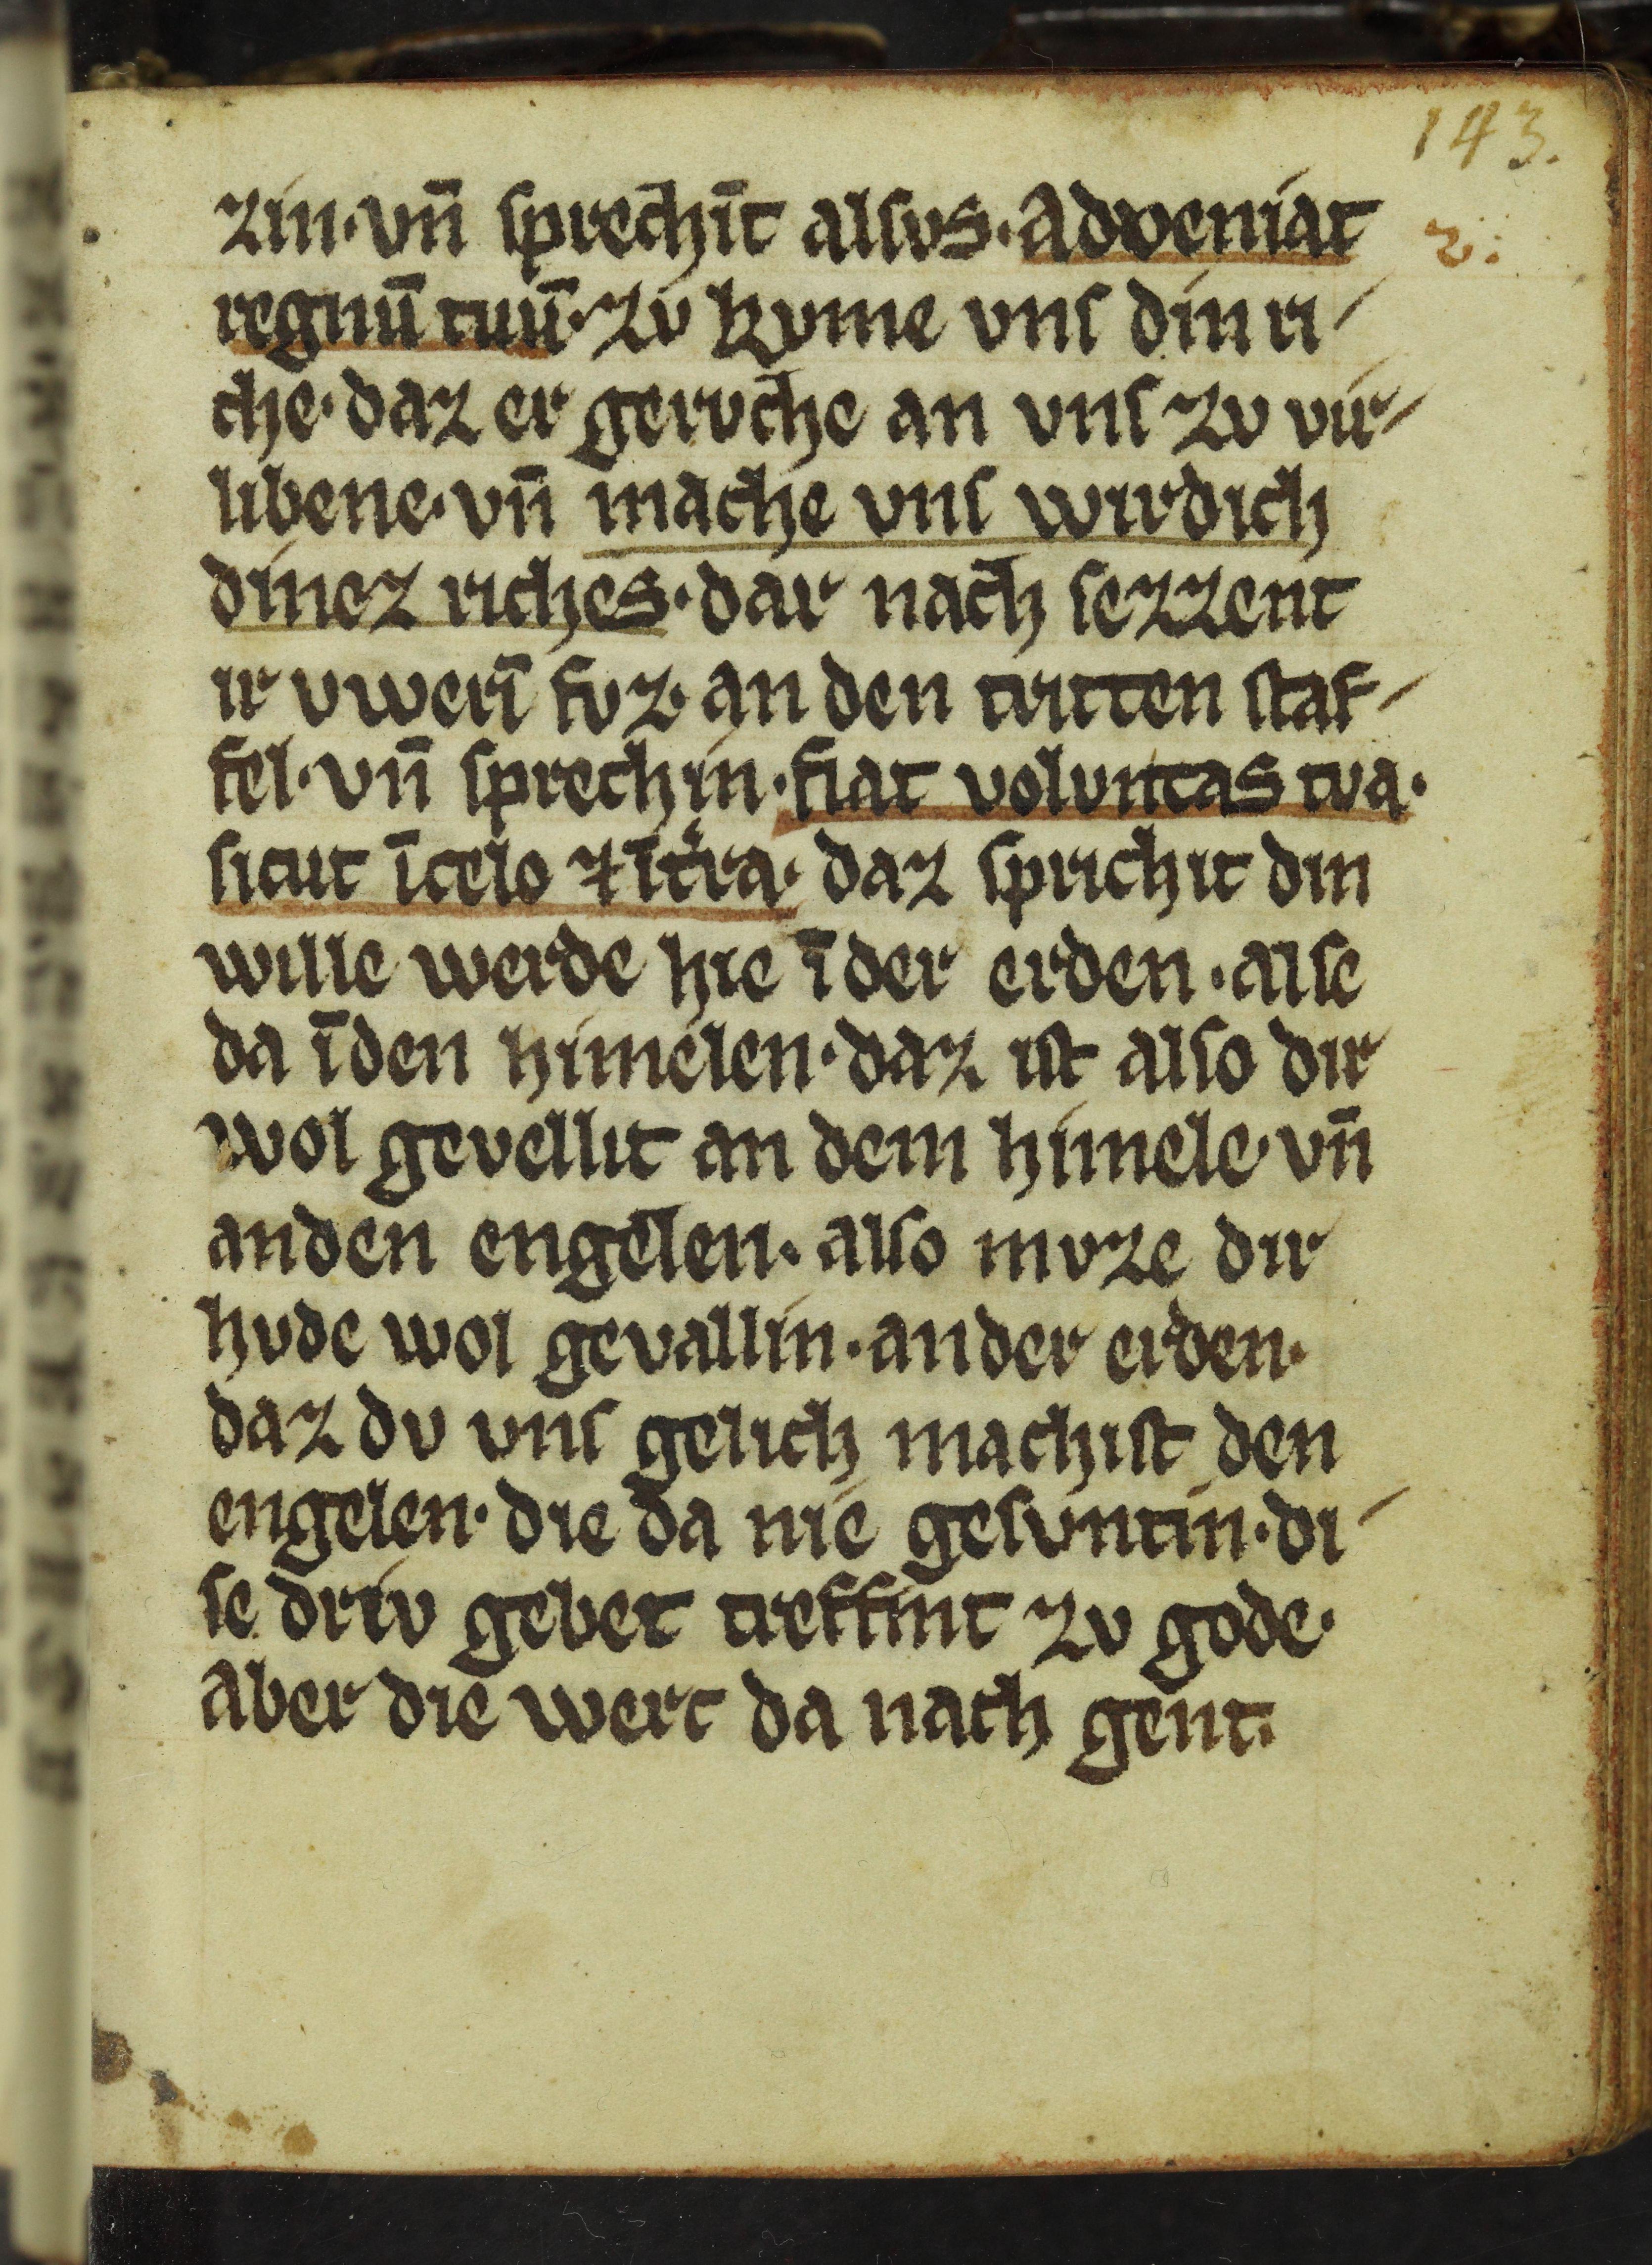 143.
zin·vn̄ sprechīt alsvs·Adveniat
2:
regnū tuū·Zv kvme vns din ri-
che·daz er gervche an vns zv vir-
libene·vn̄ mache vns wirdich
dinez riches·dar nach sezzent
ir vwerī fvz·an den tritten staf-
fel·vn̄ sprechin·fiat volvntas tva·
sicut ī celo ⁊ ī t͛ra·daz sprichit din
wille werde hie ī der erden·alse
da ī den himelen·daz ist also dir
wol gevellit an dem himele·vn̄
anden engelen·also mvze dir
hvde wol gevallin·ander erden·
daz dv vns gelich machist den
engelen·die da nie gesvntin·di-
se driv gebet treffint zv gode·
Aber die werc da nach gent·